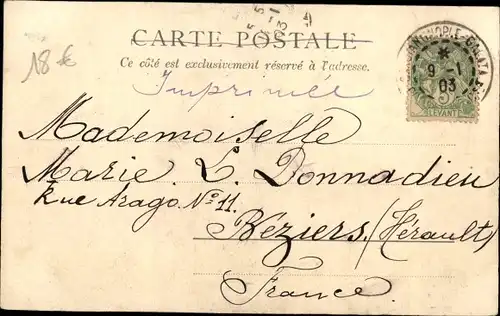 18 €
CARTE POSTALE
Ce côté est exclusivement réservé à l'adresse.
Imprimée
9 - 1
03
LEVANTE
Mademoiselle
Marie. L. Donnadieu
Rue Arago. Nº 11.
Béziers. (Hérault)
France.